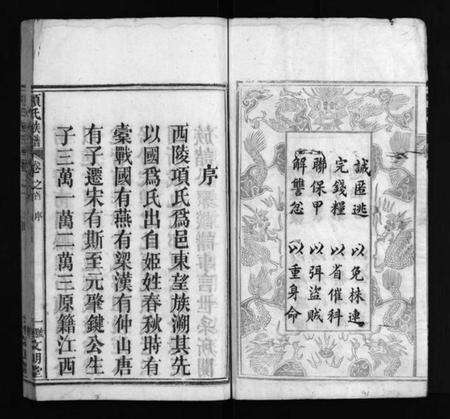 誡匿逃　以免株連
完錢糧　以省催科
聯保甲　以弭盜賊
解讐忿　以重身命
序
西陵項氏為邑東望族溯其先
以國為氏出自姬姓春秋時有
橐戰國有燕有梁漢有仲山唐
有子遷宋有斯至元肇鍵公生
子三萬一萬二萬三原籍江西
項氏族譜　卷之首　序